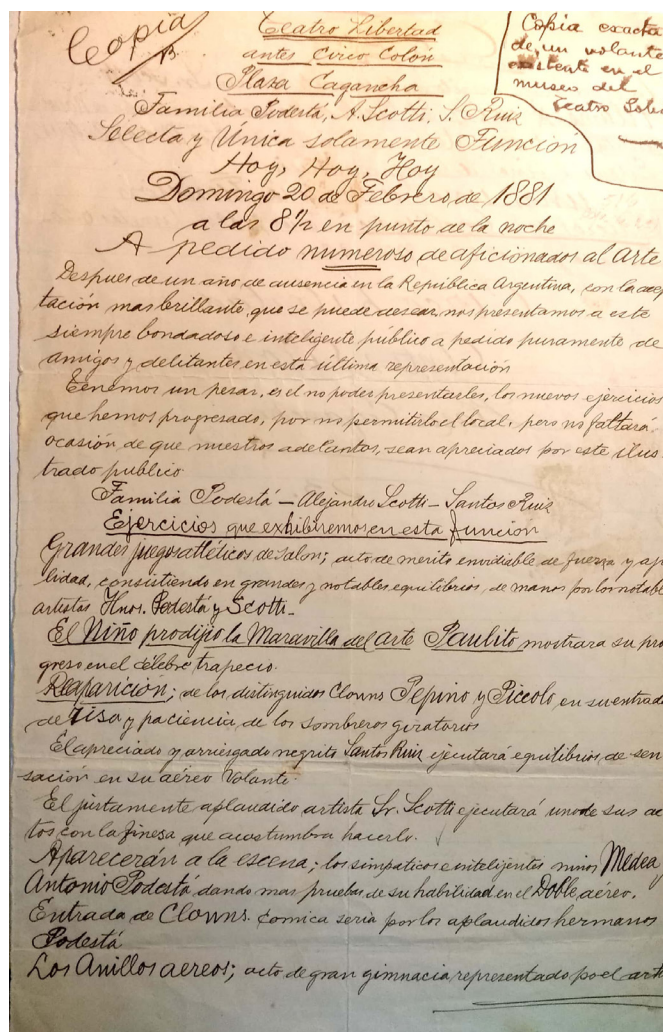 Copia
Teatro Libertad
antes Circo Colón
Plaza Cagancha
Copia exacta
de un volante
existente en el
museo del
Teatro Solis
Familia Podestá, A. Scotti, S. Ruiz
Selecta y Única solamente Función
Hoy, Hoy, Hoy
Domingo 20 de Febrero de 1881
a las 8½ en punto de la noche
A pedido numeroso de aficionados al Arte
Despues de un año de ausencia en la República Argentina, con la acep
tación mas brillante, que se puede desear, nos presentamos a este
siempre bondadoso e inteligente público a pedido puramente de
amigos y delitantes en esta última representación
Tenemos un pesar, es el no poder presentarles, los nuevos ejercicios
que hemos progresado, por no permitirlo el local, pero no faltará
ocasión de que nuestros adelantos, sean apreciados por este ilus
trado publico
Familia Podestá - Alejandro Scotti - Santos Ruiz
Ejercicios que exhibiremos en esta función
Grandes juegos atléticos de salon; acto de merito envidiable de fuerza y agi
lidad, consistiendo en grandes y notables equilibrios, de manos por los notabl
artistas Hnos. Podestá y Scotti -
El Niño prodijio la Maravilla del arte Paulito mostrara su pro
greso en el célebre trapecio.
Reaparición; de los distinguidos Clowns Pepino y Piccolo en su entrad
de risa y paciencia de los sombreros giratorios
El apreciado y arriesgado negrito Santos Ruiz ejecutará equilibrios, de sen
sación en su aéreo Volante.
El justamente aplaudido artista Sr. Scotti ejecutará uno de sus ac
tos con la finesa que acostumbra hacerlo.
Aparecerán a la escena; los simpaticos e inteligentes niños Medea
Antonio Podestá dando mas pruebas de su habilidad en el Doble aéreo.
Entrada de Clowns. Comica seria por los aplaudidos hermanos
Podestá
Los Anillos aereos; acto de gran gimnacia representado por el arti